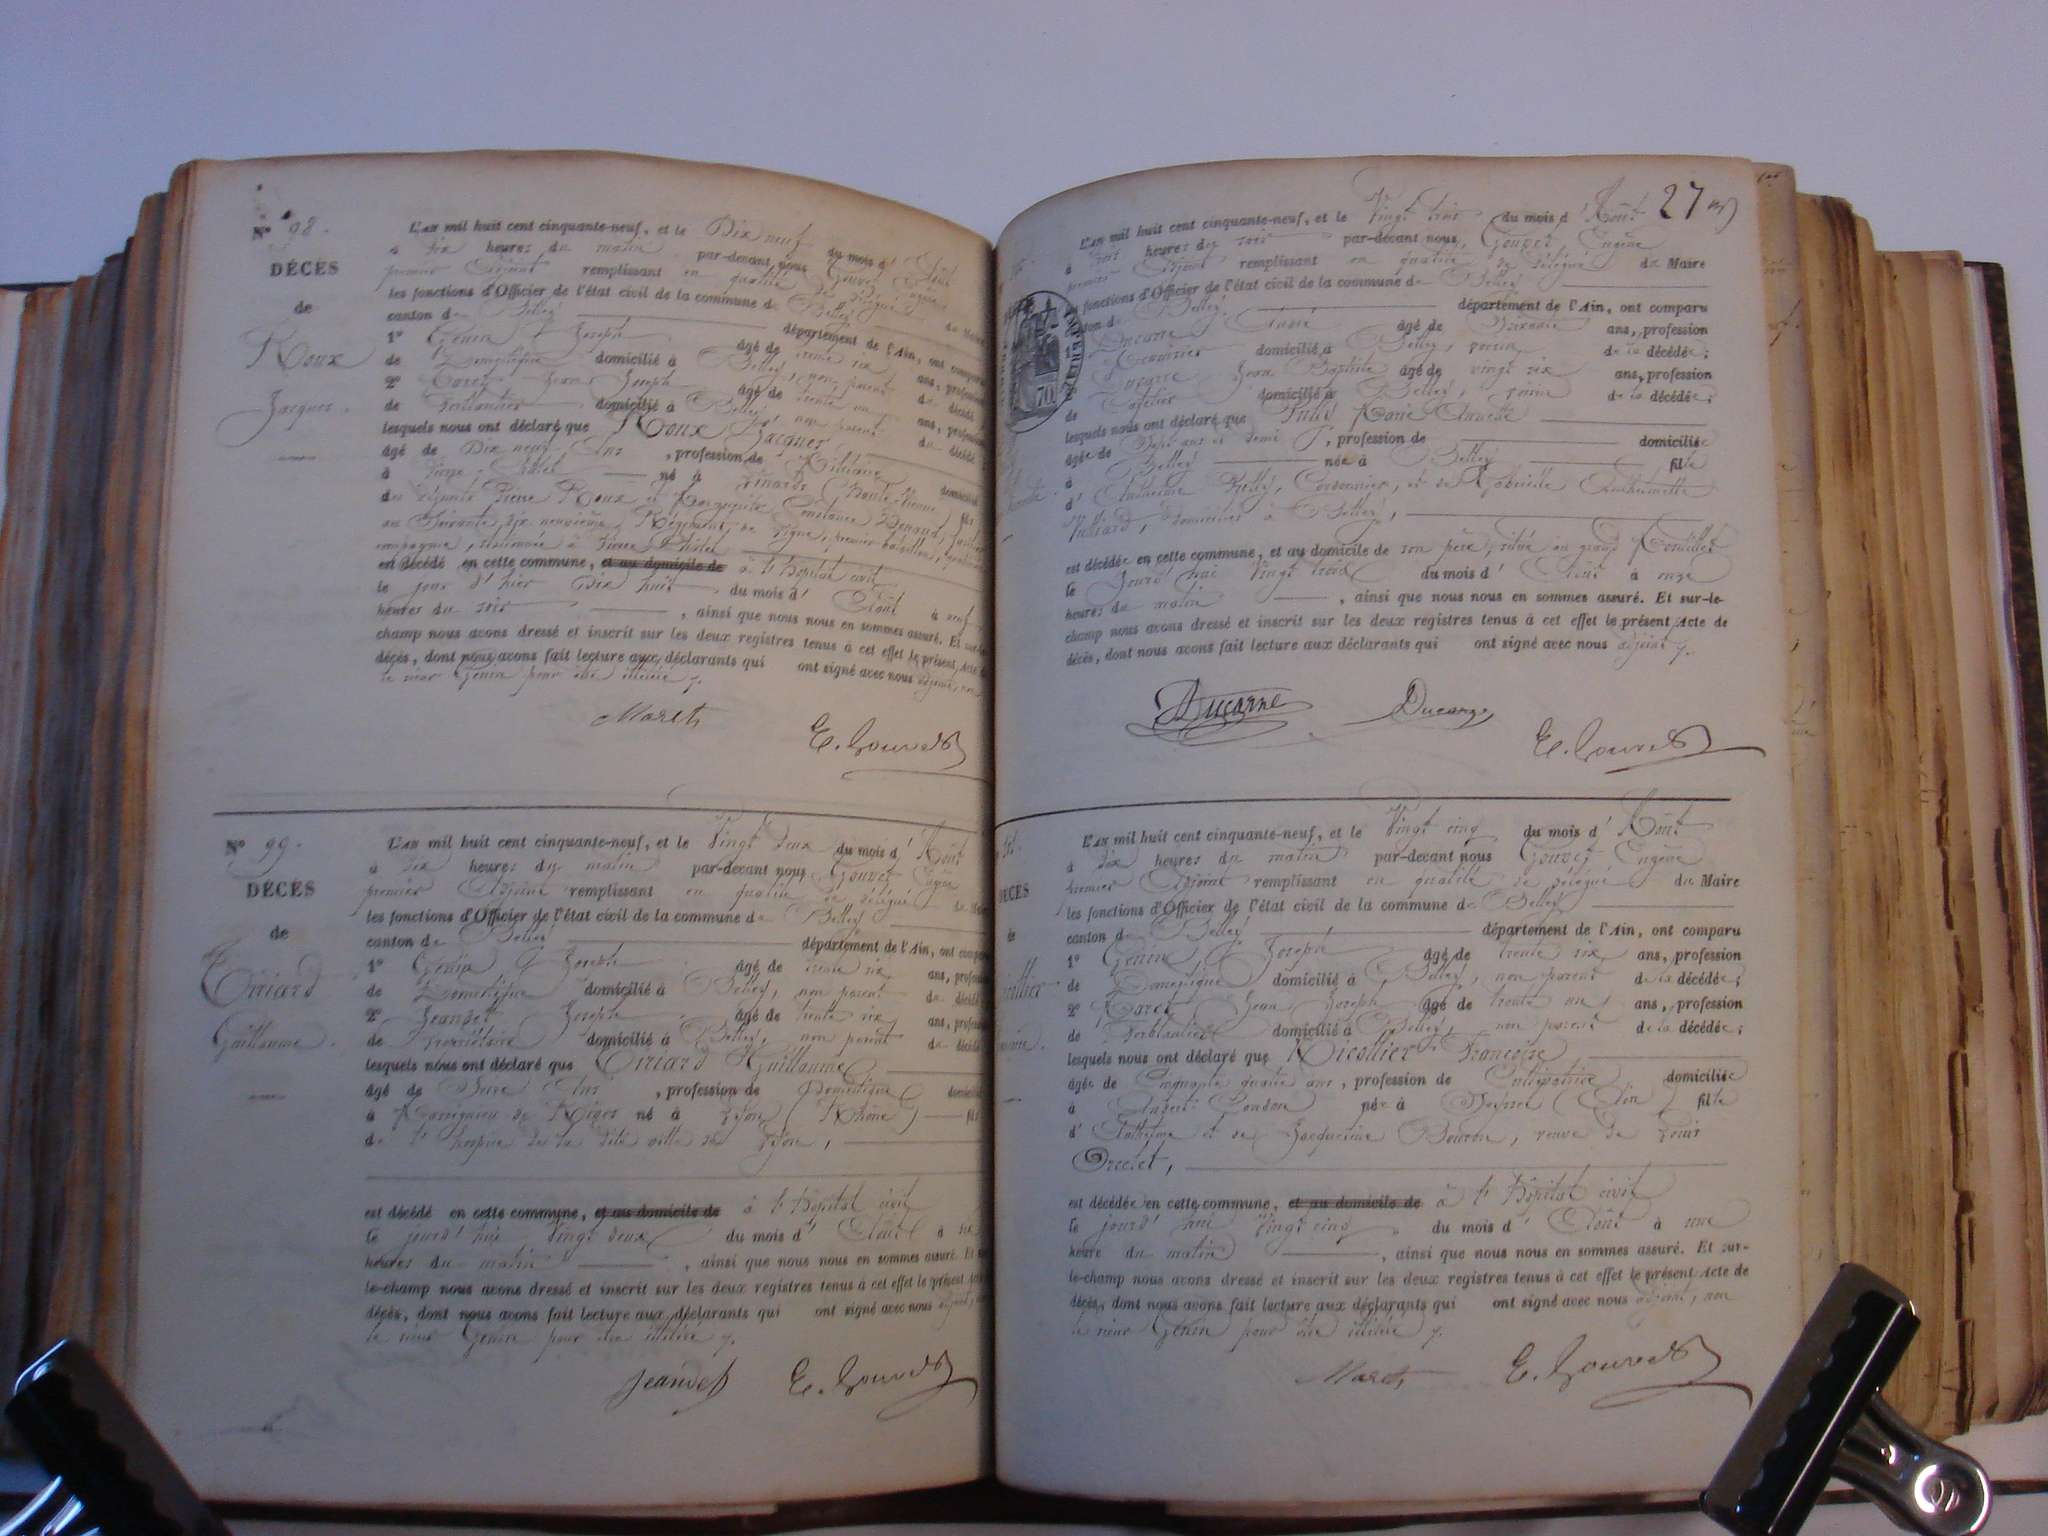 N° 98.
DÉCÈS
de
Roux
Jacques.
L'AN mil huit cent cinquante-neuf, et le Dix neuf du mois d' Août
à dix heures du matin par-devant nous Gouvet Eugène
premier Adjoint remplissant en qualité de délégué du Maire
les fonctions d'Officier de l'état civil de la commune de Belley
canton de Belley département de l'Ain, ont comparu
1° Genin Joseph âgé de trente six ans, profession
de Domestique domicilié à Belley, non parent du décédé
2° Maret Jean Joseph âgé de trente un ans, profession
de ferblantier domicilié à Belley, non parent du décédé
lesquels nous ont déclaré que Roux Jacques
âgé de Dix neuf Ans, profession de Militaire domicilié
à Pierre-Châtel né à Linards (Haute Vienne) fils
de défunts Pierre Roux et Marguerite Constance fusilier
au Soixante dix neuvième Régiment de ligne, premier bataillon,
compagnie, stationnée à Pierre Châtel
est décédé en cette commune, et au domicile de à l'hôpital civil
le jour d'hier Dix huit du mois d' Août à neuf
heures du soir, ainsi que nous nous en sommes assuré. Et sur-le-
champ nous avons dressé et inscrit sur les deux registres tenus à cet effet le présent Acte de
décès, dont nous avons fait lecture aux déclarants qui ont signé avec nous adjoint, non
le sieur Genin pour être illitéré
Maret
E. Gouvet
N° 99.
DÉCÈS
de
Guillaume.
L'AN mil huit cent cinquante-neuf, et le Vingt deux du mois d' Août
à dix heures du matin par-devant nous Gouvet Eugène
premier Adjoint remplissant en qualité de délégué du Maire
les fonctions d'Officier de l'état civil de la commune de Belley
canton de Belley département de l'Ain, ont comparu
1° Genin Joseph âgé de trente six ans, profession
de Domestique domicilié à Belley, non parent du décédé
2° Jeandet Joseph âgé de trente six ans, profession
de Propriétaire domicilié à Belley, non parent du décédé
lesquels nous ont déclaré que Guillaume
âgé de Ans, profession de Domestique domicilié
à Massignieu de Rives né à Lyon (Rhône) fils
de l'hospice de la dite ville de Lyon,
est décédé en cette commune, et au domicile de à l'hôpital civil
le jourd'hui Vingt deux du mois d' Août à six
heures du matin, ainsi que nous nous en sommes assuré. Et sur-
le-champ nous avons dressé et inscrit sur les deux registres tenus à cet effet le présent Acte
décès, dont nous avons fait lecture aux déclarants qui ont signé avec nous adjoint, non
le sieur Genin pour être illitéré
Jeandet
E. Gouvet
27
L'AN mil huit cent cinquante-neuf, et le Vingt trois du mois d' Août
à trois heures du soir par-devant nous, Gouvet Eugène
premier Adjoint remplissant en qualité de délégué du Maire
les fonctions d'Officier de l'état civil de la commune de Belley
canton de Belley département de l'Ain, ont comparu
Ducarre âgé de Soixante ans, profession
domicilié à Belley, voisin de la décédée;
Ducarre Jean Baptiste âgé de vingt six ans, profession
de domicilié à Belley, voisin de la décédée;
lesquels nous ont déclaré que Marie Annette
âgée de Sept ans et demi, profession de domiciliée
à Belley née à Belley fille
d' Anthelme, Cordonnier, et de Gabrielle Anthelmette
Julliard, domiciliés à Belley,
est décédée en cette commune, et au domicile de son père, situé au grand
le Jourd'hui Vingt trois du mois d' Août à onze
heures du matin, ainsi que nous nous en sommes assuré. Et sur-le-
champ nous avons dressé et inscrit sur les deux registres tenus à cet effet le présent Acte de
décès, dont nous avons fait lecture aux déclarants qui ont signé avec nous adjoint
Ducarre
Ducarre
E. Gouvet
70
DÉCÈS
L'AN mil huit cent cinquante-neuf, et le Vingt cinq du mois d' Août
à dix heures du matin par-devant nous Gouvet Eugène
premier Adjoint remplissant en qualité de délégué du Maire
les fonctions d'Officier de l'état civil de la commune de Belley
canton de Belley département de l'Ain, ont comparu
1° Genin Joseph âgé de trente six ans, profession
de Domestique domicilié à Belley, non parent de la décédée;
2° Maret Jean Joseph âgé de trente un ans, profession
de ferblantier domicilié à Belley, non parent de la décédée;
lesquels nous ont déclaré que Nicollier Françoise
âgée de Cinquante quatre ans, profession de Cultivatrice domiciliée
à née à (Ain) fille
d' Anthelme et de Jacqueline, veuve de Louis
est décédée en cette commune, et au domicile de à l'hôpital civil
le jourd'hui Vingt cinq du mois d' Août à une
heure du matin, ainsi que nous nous en sommes assuré. Et sur-
le-champ nous avons dressé et inscrit sur les deux registres tenus à cet effet le présent Acte de
décès, dont nous avons fait lecture aux déclarants qui ont signé avec nous adjoint, non
le sieur Genin pour être illitéré
Maret
E. Gouvet